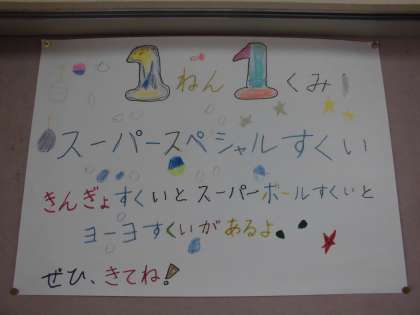 1ねん1くみ
スーパースペシャルすくい
きんぎょすくいとスーパーボールすくいと
ヨーヨすくいがあるよ
ぜひ、きてね!